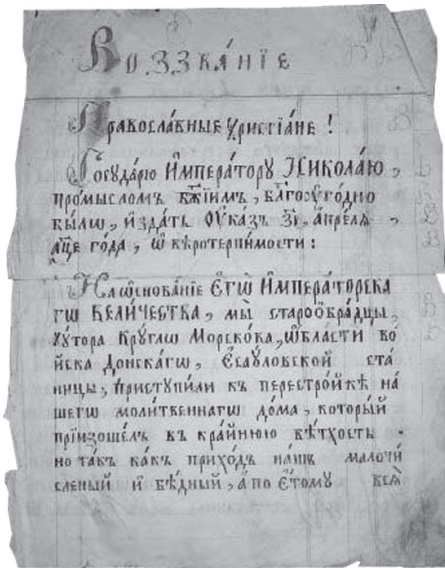 Воззва́нїе
Правосла́вные Христїа́не !
Госуда́рю И҆мпера́тору Никола́ю ,
про́мысломъ бж҃їимъ , бл҃гоꙋго́дно
бы́лѡ , и҆зда́ть Оу҆ка́зъ з҃і , а҆прѐля ,
а҃ѱ҃е го́да , ѡ҆ вѣротерпи́мости :
На ѡ҆снова́нїе Е҆гѡ̀ И҆мпера́торска
гѡ Вели́чества , мы̀ старообра́дцы ,
ху́тора Кру́глѡ Морсько́ка , ѡ҆́бласти во́
йска Донска́гѡ , Е҆саꙋ́ловской ста
ни́цы , приступи́ли къ перестро́йкѣ на́
шегѡ моли́твеннагѡ до́ма , кото́рый
прїизоше́лъ въ кра́йнюю вѣ́тхость .
но та́къ ка́къ прихо́дъ на́шъ малочи́
сленый и҆ бѣ́дный , а҆ по Е҆́тому всѧ̀